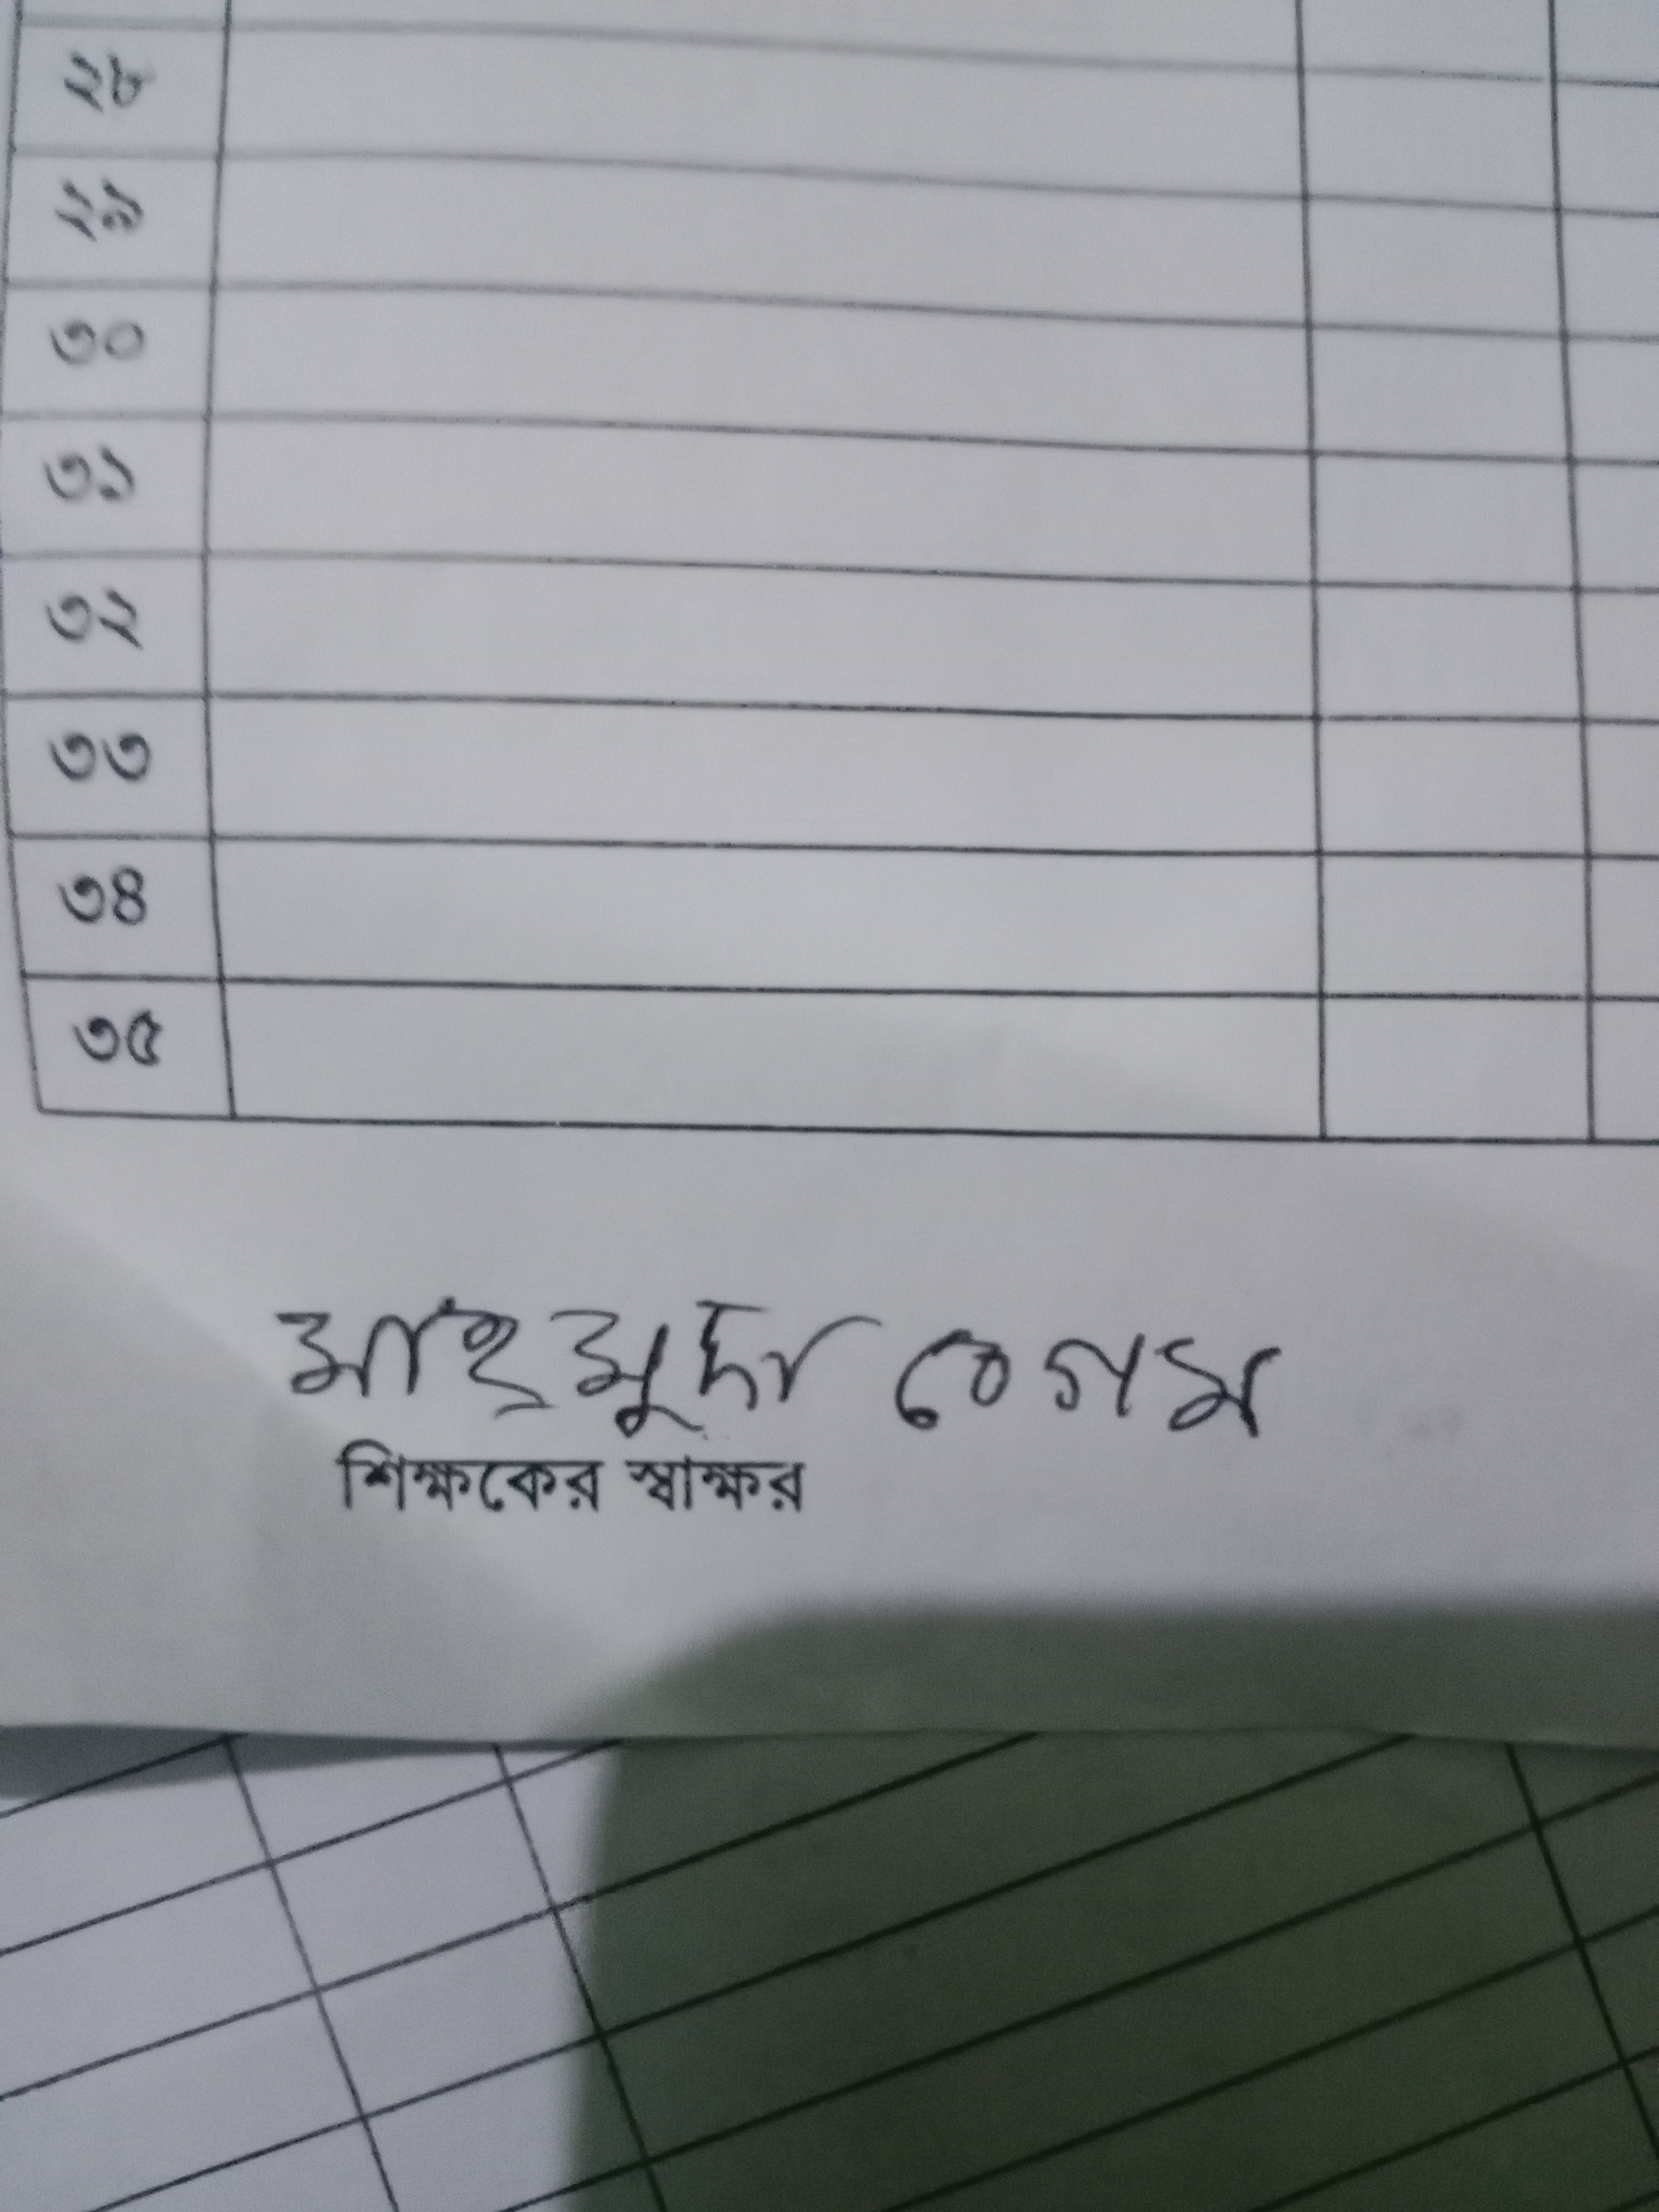 ২৮
২৯
৩০
৩১
৩২
৩৩
৩৪
৩৫
মাহমুদা বেগম
শিক্ষকের স্বাক্ষর